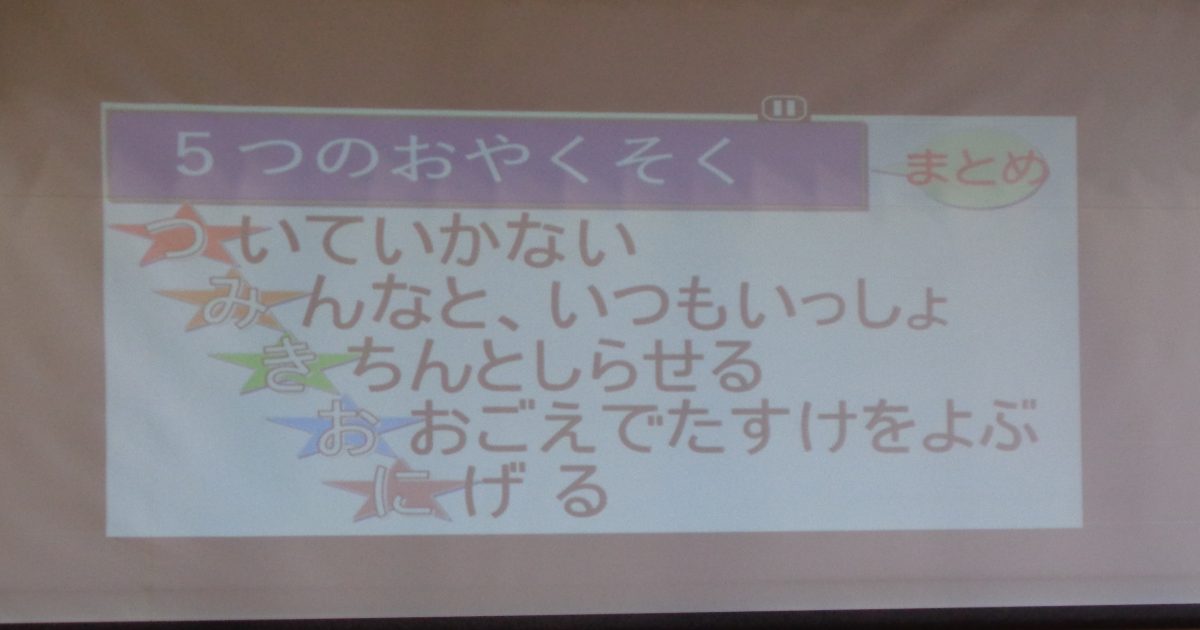 5つのおやくそく
まとめ
ついていかない
みんなと、いつもいっしょ
きちんとしらせる
おおごえでたすけをよぶ
にげる